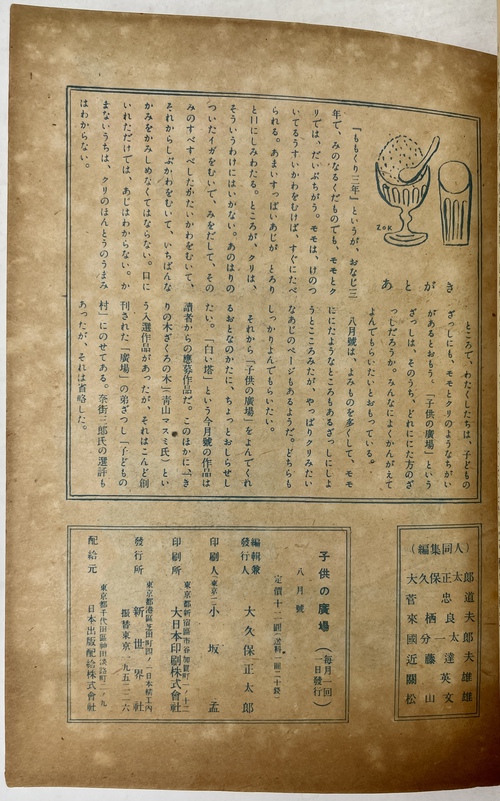 ZOK
あとがき
「ももくり三年」というが、おなじ三
年で、みのなるくだものでも、モモとク
リでは、だいぶちがう。モモは、けのつ
いてるうすいかわをむけば、すぐにたべ
られる。あまいすっぱいあじが　とろり
と口にしみわたる。ところが、クリは、
そういうわけにはいかない。あのはりの
ついたイガをむいて、みをだして、その
みのすべすべしたかたいかわをむいて、
それからしぶかわをむいて、いちばんな
かみをかみしめなくてはならない。口に
いれただけでは、あじはわからない。か
まないうちは、クリのほんとうのうまみ
はわからない。
ところで、わたくしたちは、子どもの
ざっしにも、モモとクリのようなちがい
があるとおもう。「子供の廣場」という
ざっしは、そのうち、どれににた方のざ
っしだろうか。みんなによくかんがえて
よんでもらいたいとおもっている。
八月號は、よみものを多くして、モモ
ににたようなところもあるざっしにしよ
うとこころみたが、やっぱりクリみたい
なあじのページもあるようだ。どちらも
しっかりよんでもらいたい。
それから「子供の廣場」をよんでくれ
るおとなのかたに、ちょっとおしらせし
たい。「白い塔」という今月號の作品は
讀者からの應募作品だ。このほかに「き
りの木ざくろの木」（青山マスミ氏）とい
う入選作品があったが、それはこんど創
刊された「廣場」の弟ざっし「子どもの
村」にのせてある。奈街三郎氏の選評も
あったが、それは省略した。
（編集同人）
大久保正太郎
菅忠道
來栖良夫
國分一太郎
近藤達夫
關英雄
松山文雄
子供の廣場（毎月一回一日發行）
八月號
編輯兼發行人　大久保正太郎
印刷人　小坂孟
印刷所　大日本印刷株式會社
發行所　新世界社
配給元　日本出版配給株式會社